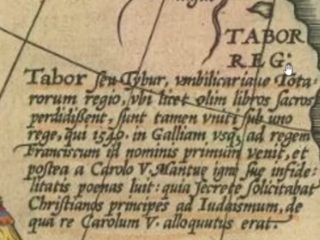 TABOR
REG:
Tabor seu Tybur, vmbilicariaue Tota-
rorum regio, vbi licet olim libros sacros
perdidißent, sunt tamen vniti sub uno
rege, qui 1540. in Galliam vsq3 ad regem
Franciscum id nominis primum venit, et
postea a Carolo V. Mantuę igne suę infide-
litatis poenas luit: quia secrete solicitabat
Christianos principes ad Iudaismum, de
qua re Carolum V. alloquutus erat.